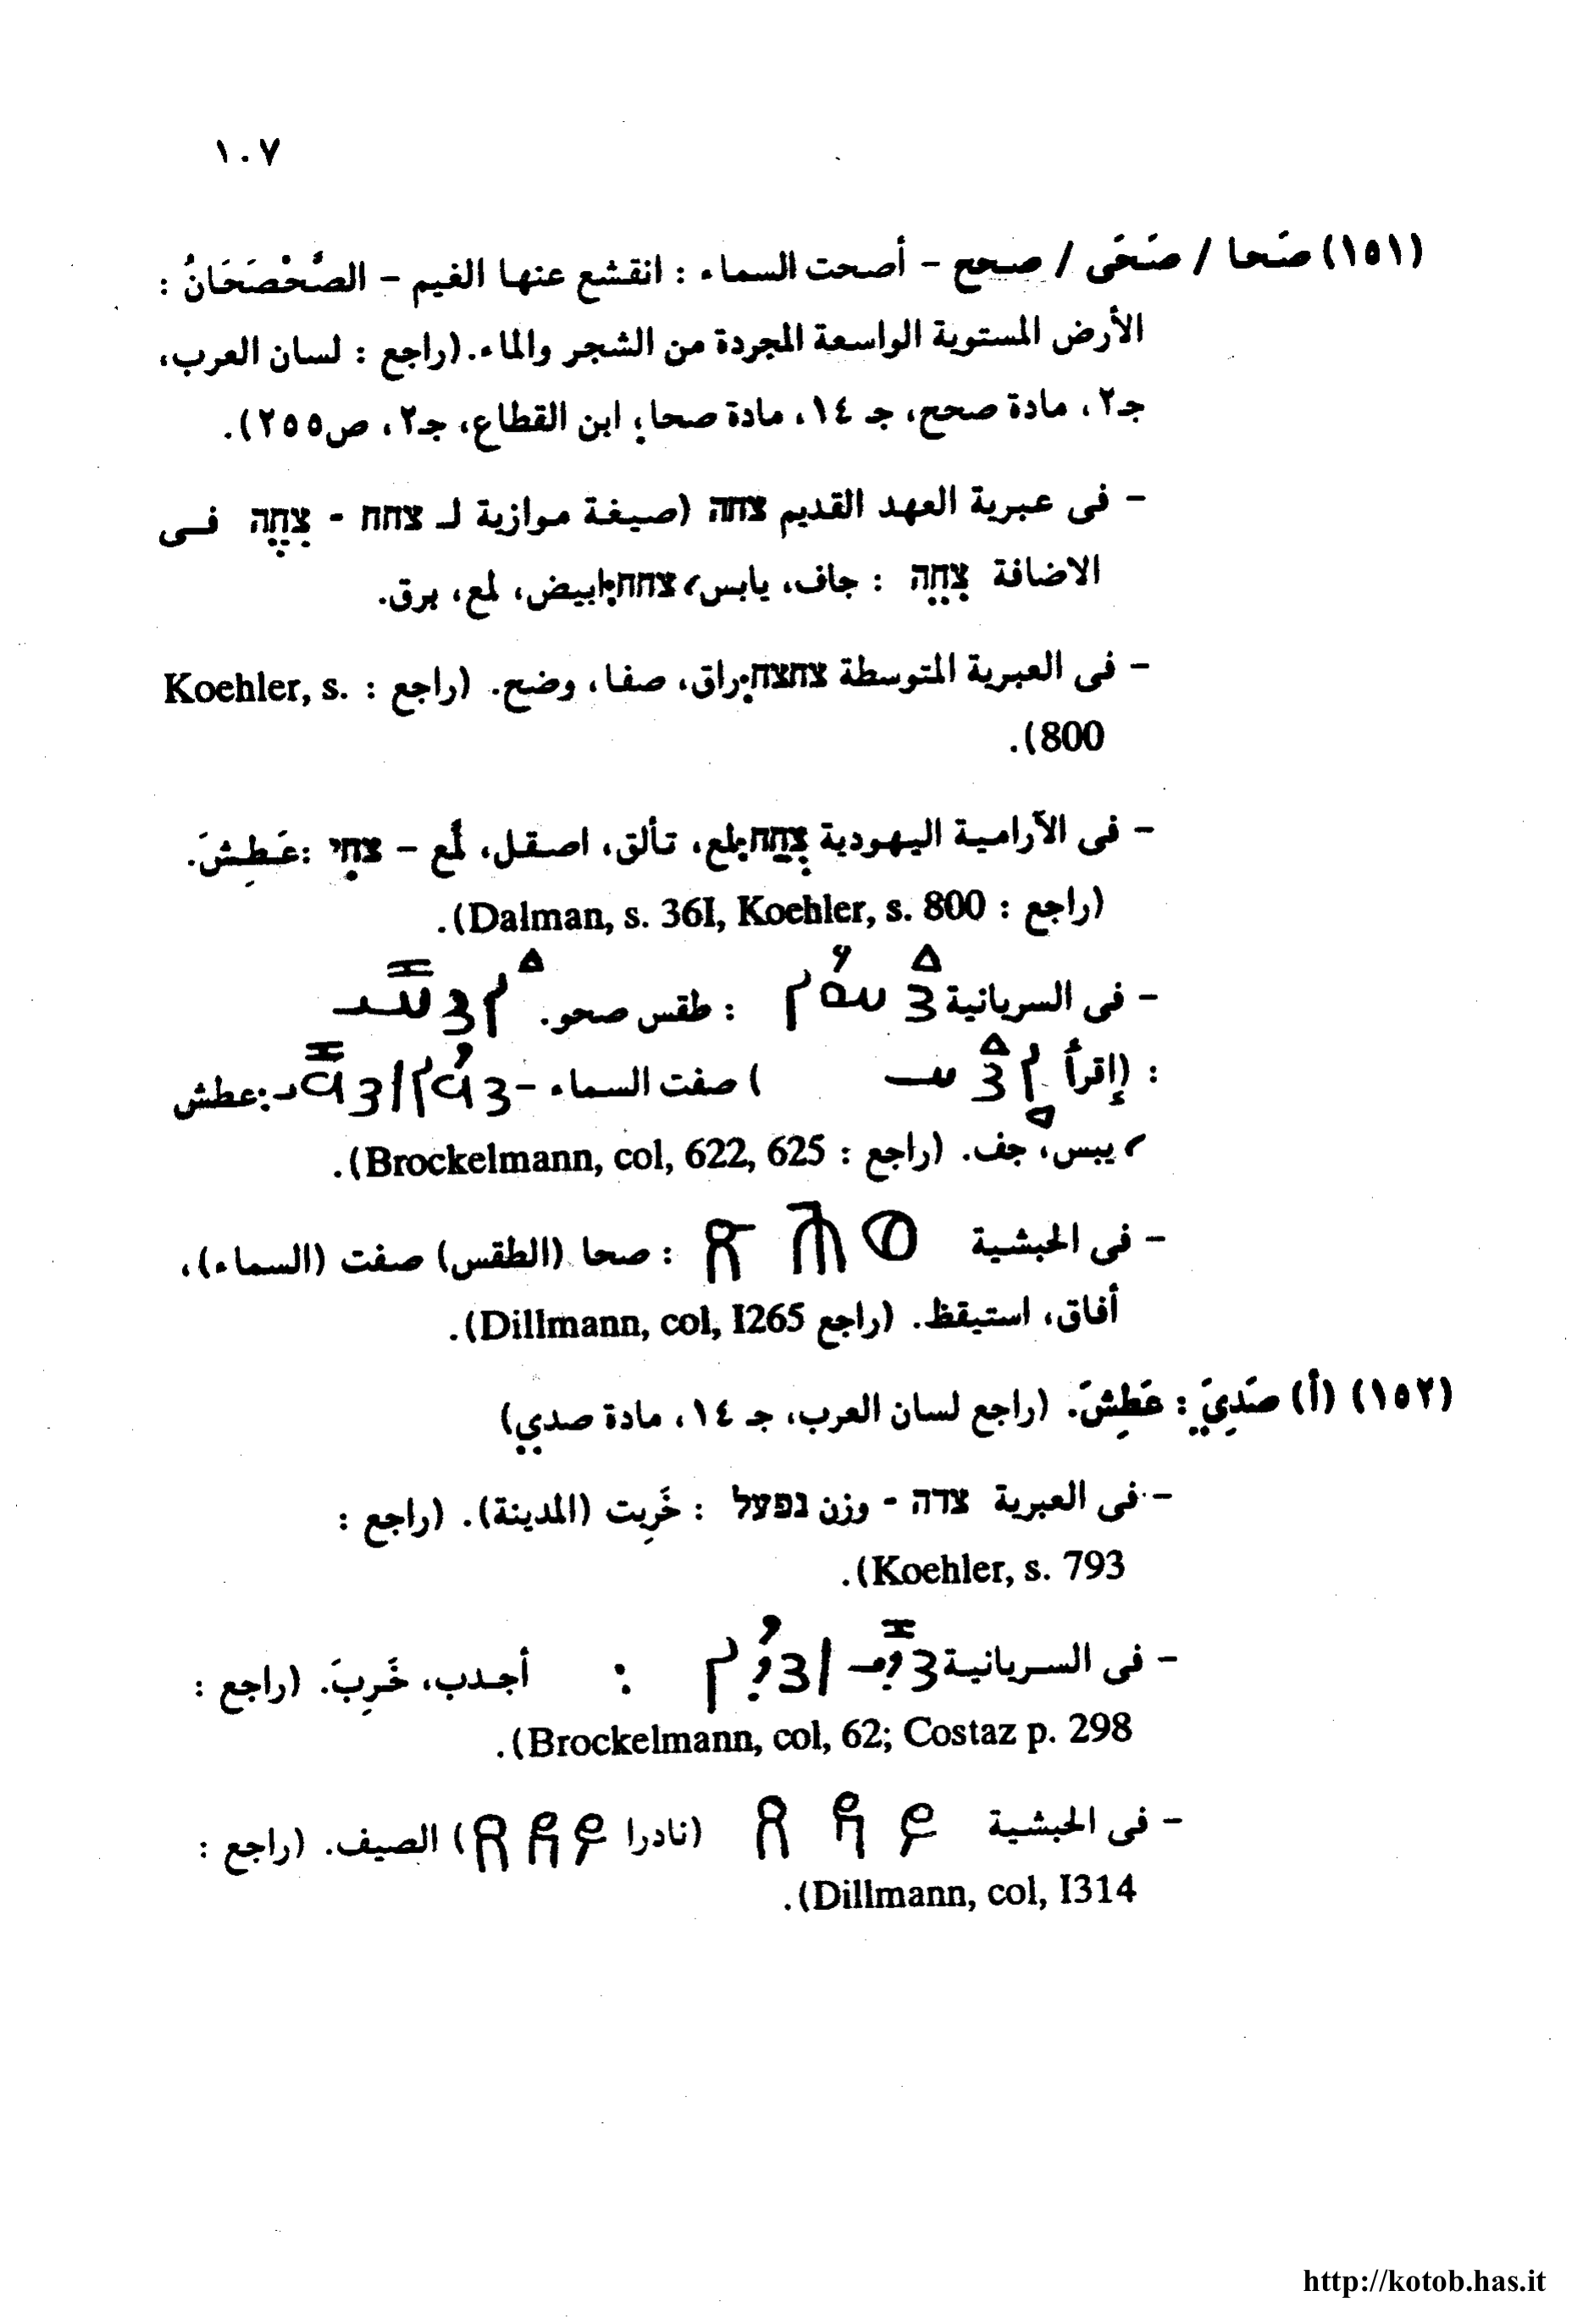 ١٠٧
(١٥١) صَحا / صَحَى / صحح - أصحت السماء : انقشع عنها الغيم - الصَّحْصَحَانُ :
الأرض المستوية الواسعة المجردة من الشجر والماء. (راجع : لسان العرب،
جـ٢، مادة صحح، جـ ١٤، مادة صحا؛ ابن القطاع، جـ٢، ص٢٥٥).
- فى عبرية العهد القديم צחה (صيغة موازية لـ צחח - צחה فى
الاضافة צחה : جاف، يابس، צחח: ابيض، لمع، برق.
- فى العبرية المتوسطة צחצח: راق، صفا، وضح. (راجع : Koehler, s.
800).
- فى الآرامية اليهودية צחח: لمع، تألق، اصقل، لمَّع - צחי : عَطِشَ.
(راجع : Dalman, s. 36I, Koehler, s. 800).
- فى السريانية : طقس صحو.
: (إقرأ ) صفت السماء - : عطش
، يبس، جف. (راجع : Brockelmann, col, 622, 625).
- فى الحبشية : صحا (الطقس) صفت (السماء)،
أفاق، استيقظ. (راجع Dillmann, col, I265).
(١٥٢) (أ) صَدِيَ : عَطِشَ. (راجع لسان العرب، جـ ١٤، مادة صدي)
- فى العبرية צדה - وزن נפעל : خَرِبت (المدينة). (راجع :
Koehler, s. 793).
- فى السريانية : أجدب، خَرِبَ. (راجع :
Brockelmann, col, 62; Costaz p. 298).
- فى الحبشية (نادرا ) الصيف. (راجع :
Dillmann, col, I314).
http://kotob.has.it